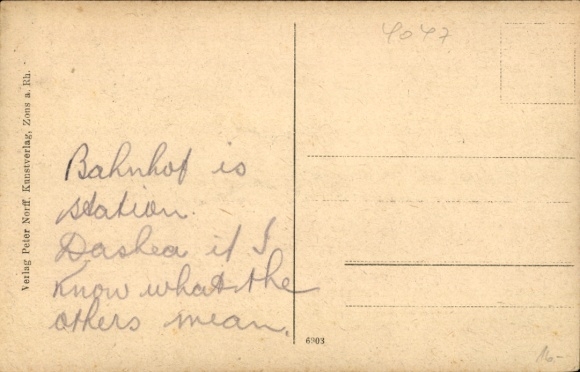 4047
Verlag Peter Norff, Kunstverlag, Zons a. Rh.
Bahnhof is
station.
Dashed if I
know what the
others mean.
6203
16.-